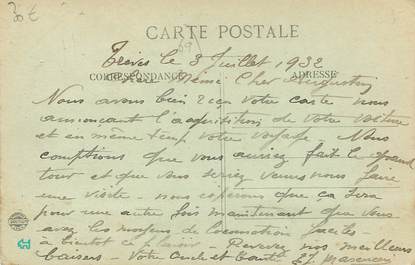 30 €
CARTE POSTALE
69
Trèves le 3 Juillet 1932
CORRESPONDANCE ADRESSE
Cher Augustin
Nous avons bien reçu votre carte nous
annoncant l'acquisition de votre voiture
et en même temp votre voyage. Nous
comptions que vous auriez fait le grand
tour et que vous seriez venus nous faire
une visite. nous espérons que ça sera
pour une autre fois maintenant que vous
avez les moyens de locomotion faciles.
à bientot ce plaisir. Recevez nos meilleurs
baisers. Votre oncle et tante